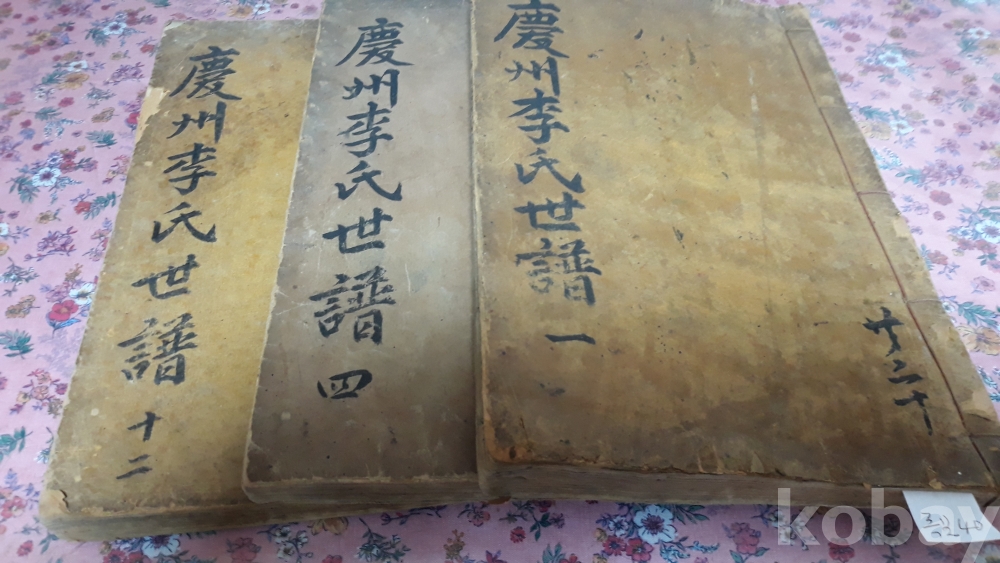 慶州李氏世譜 一
共二十
慶州李氏世譜 四
慶州李氏世譜 十二
kobay